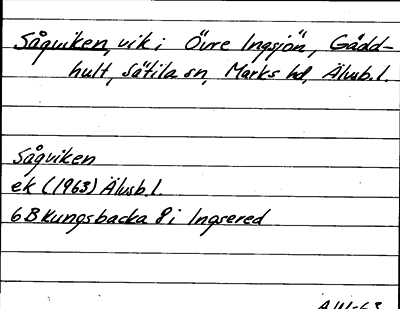 Sågviken, vik i Övre Ingsjön, Gådd-
hult, Sätila sn, Marks hd, Älvsb. l.
Sågviken
ek (1963) Älvsb. l
6B Kungsbacka 8i Ingsered